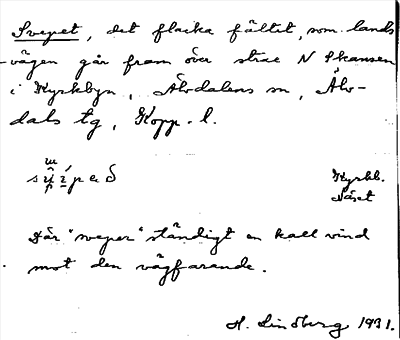 Svepet, det flacka fältet, som lands-
vägen går fram över strax N Skansen
i Kyrkbyn, Älvdalens sn, Älv-
dals tg, Kopp. l.
Kyrkb.
Näset
Här "sveper" ständigt en kall vind
mot den vägfarande.
H. Lindberg 1931.